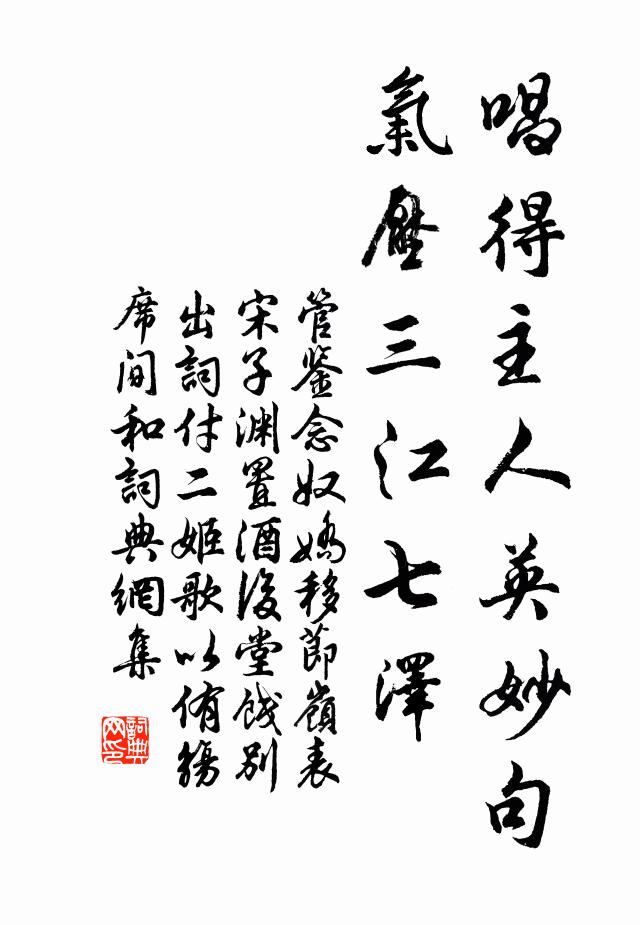 唱得主人英妙句
氣壓三江七澤
管鉴念奴嬌移節嶺表
宋子淵置酒後堂餞别
出詞付二姬歌以侑觴
席间和詞典網集
詞典
网印